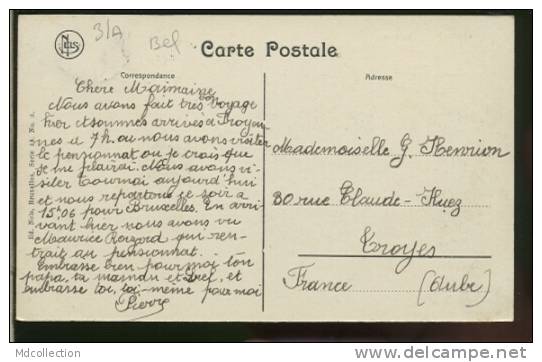 3/A
Bel
NELS
Carte Postale
Correspondance
Adresse
Chère Maimaine
Nous avons fait très voyage
hier et sommes arrivés à Froyen
nes à 7h. ou nous avons visiter
le pensionnat ou je crois que
je me plairai. Nous avons vi-
siter Tournai aujourd'hui
et nous repartons ce soir à
15.06 pour Bruxelles. En arri
vant hier nous avons vu
Maurice qui ren-
trait au pensionnat.
Embrasse bien pour moi ton
papa, ta maman et et
embrasse toi, toi-même pour moi
Pierre
Mademoiselle G. Henrion
30 rue Claude-Huez
Troyes
France (Aube)
Ed. Nels, Bruxelles, Série
Mdcollection
www.delcampe.net